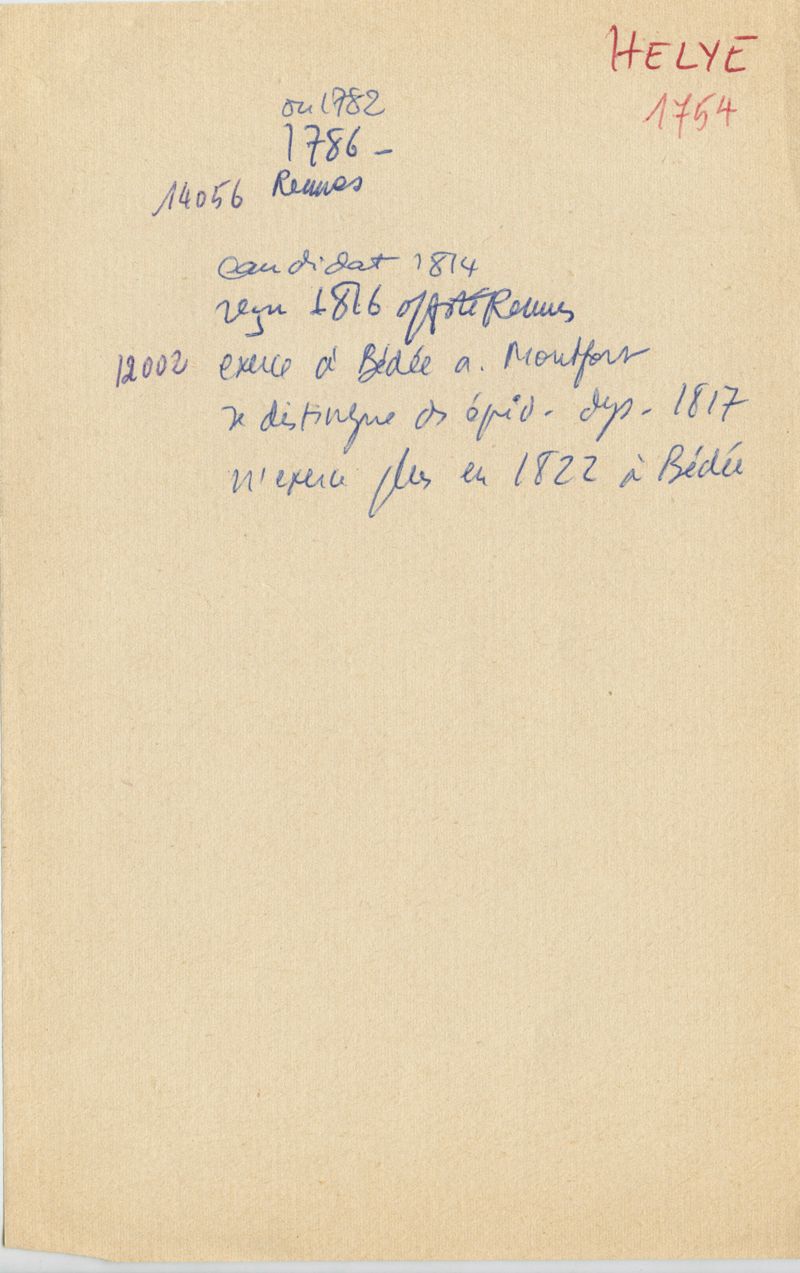 HELYE
1754
ou 1782
1786 -
14056 Rennes
candidat 1814
reçu 1816 off Rennes
12002 exerce à Bédée a. Montfort
se distingue ds épid. dys. 1817
n'exerce plus en 1822 à Bédée